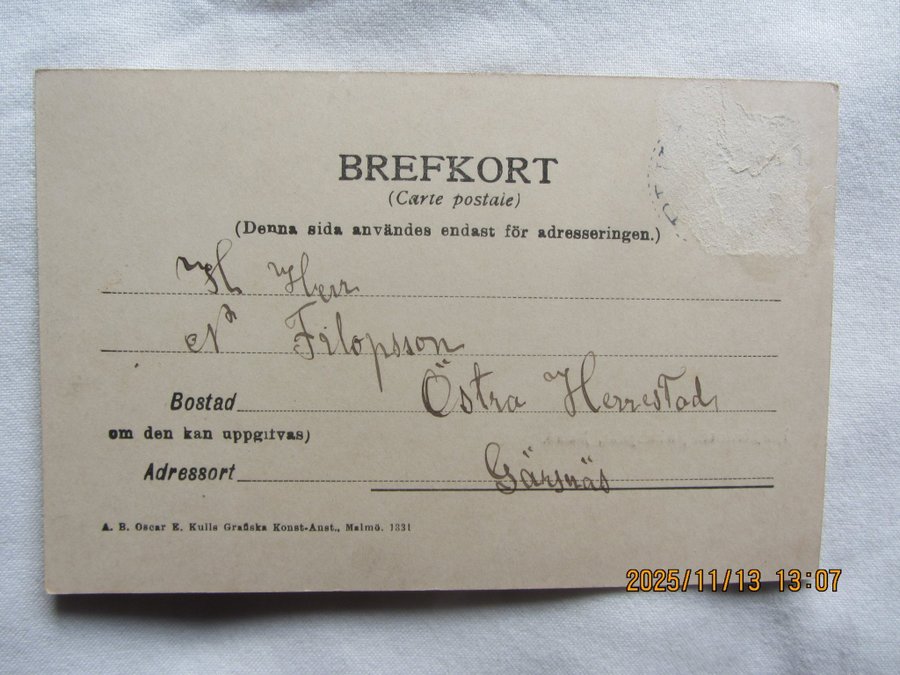 BREFKORT
(Carte postale)
(Denna sida användes endast för adresseringen.)
H Herr
N Filopsson
Bostad Östra Herrestad
om den kan uppgitvas)
Adressort Gärsnäs
A. B. Oscar E. Kulls Grafiska Konst-Anst., Malmö. 1331
2025/11/13 13:07